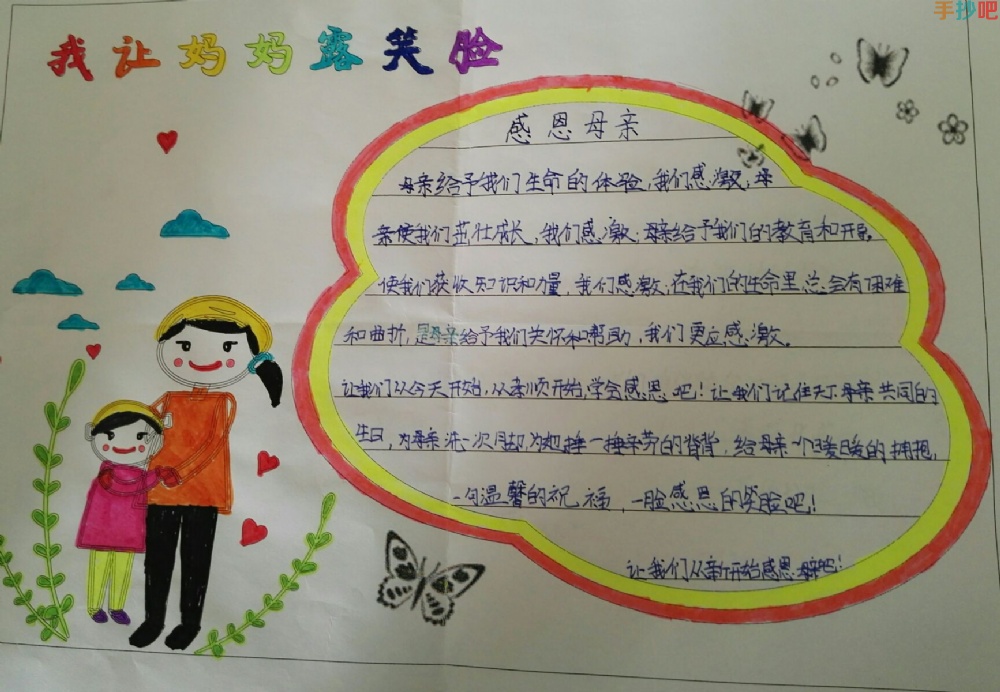 手抄吧
我让妈妈露笑脸
感恩母亲
母亲给予我们生命的体验,我们感激,母
亲使我们茁壮成长,我们感激;母亲给予我们的教育和开导,
使我们获收知识和力量,我们感激;在我们的生命里总会有困难
和曲折,是母亲给予我们关怀和帮助,我们更应感激。
让我们从今天开始,从孝顺开始,学会感恩吧!让我们记住天下母亲共同的
生日,为母亲洗一次脚,为她捶一捶辛劳的背背,给母亲一个暖暖的拥抱,
一句温馨的祝福,一脸感恩的笑脸吧!
让我们从新开始感恩 吧!